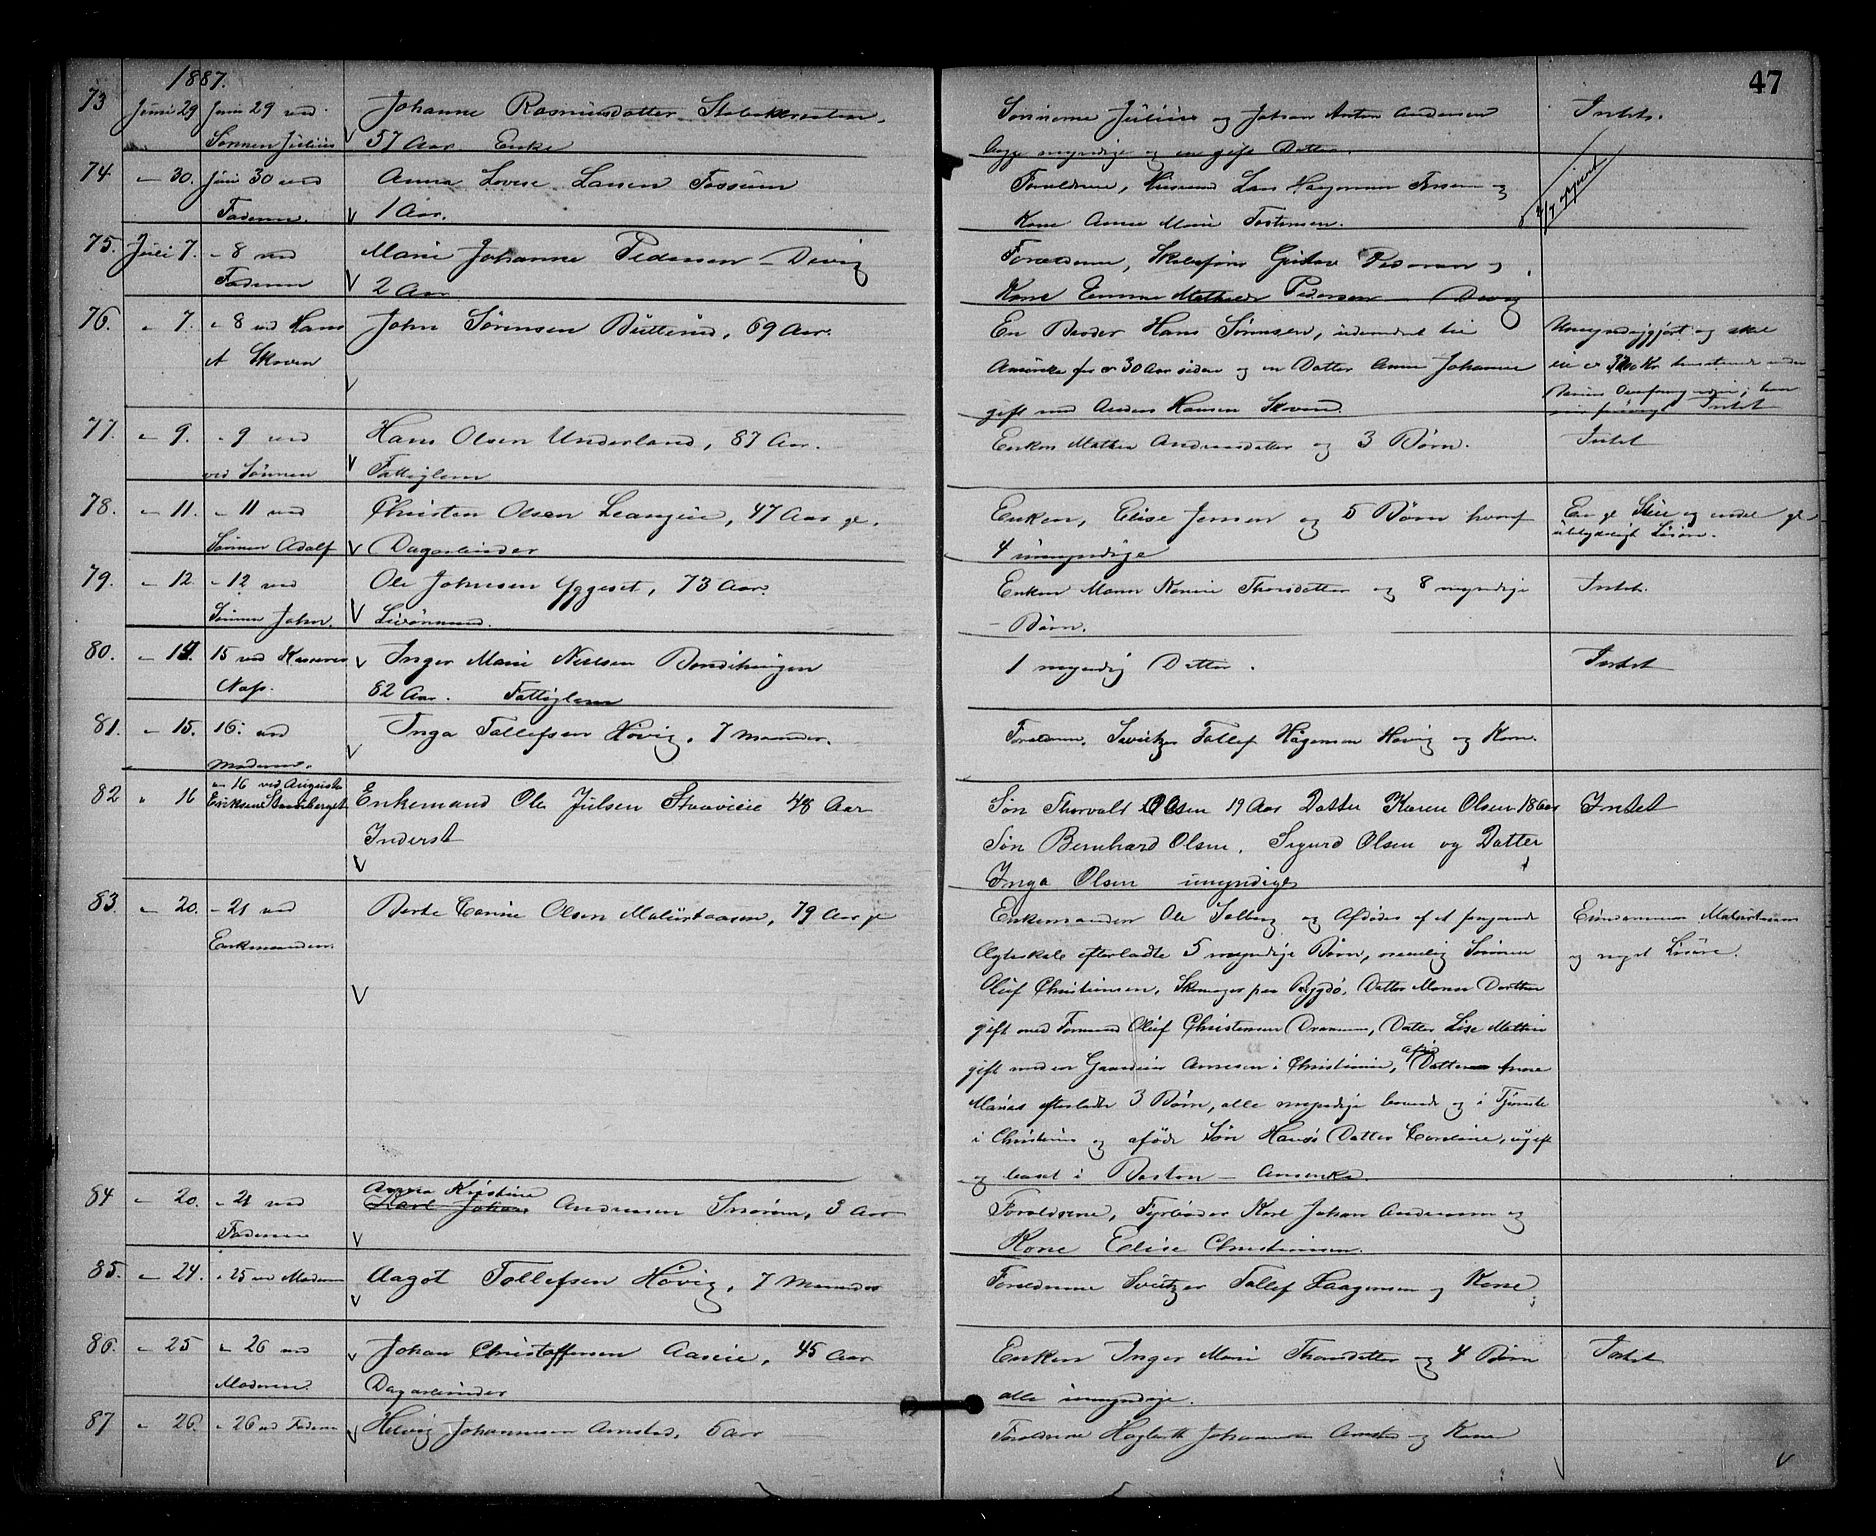 47
1887.
73 Juni 29 Juni 29 ved Johanne Rasmusdatter Stabækvæien, Sønnerne Julius og Johan Anton Andersen Intet.
Sønnen Julius 57 Aar. Enke begge myndige og en gift Datter.
74. " 30. Juni 30 ved Anna Lovise Larsen Fossum Forældrene, Husmand Lars
Faderen. 1 Aar. Kone Anne Marie Torstensen.
75. Juli 7. " 8 ved Marie Johanne Pedersen Forældrene, Gustav Pedersen og
Faderen 2 Aar Kone Emma Mathilde Pedersen
76. " 7. " 8 ved Hans John Sørensen Butterud, 69 Aar. En Broder Hans Sørensen, udvandret til Umyndiggjort og skal
A Skoven Amerika for 30 Aar siden og en Datter Anne Johanne
gift med Anders Hansen Skoven Intet
77. " 9. " 9 ved Hans Olsen Underland, 87 Aar. Enken Mathea Andreasdatter og 3 Børn. Intet
ved Sønnen Fattiglem
78. " 11. " 11 ved Christen Olsen Leangeie, 47 Aar gl. Enken, Elise Jensen og 5 Børn hvoraf En gl Stue og endel gl
Sønnen Adolf Dagarbeider 4 umyndige ubetydeligt Løsøre.
79. " 12. " 12 ved Ole Johnsen Yggeset, 73 Aar. Enken Maren Karine Thorsdatter og 8 myndige Intet.
Sønnen John. Livørmand. Børn.
80. " 14. 15 ved Inger Marie Nielsen Bondikungen 1 myndig Datter. Intet
Næss. 82 Aar. Fattiglem
81. " 15. 16. ved Inga Tollefsen Høvig, 7 Maaneder. Forældrene, Tollef Haagensen Høvig og Kone.
Moderen.
82 " 16 " 16 ved Augusta Enkemand Ole Julsen Staavieie 48 Aar Søn Thorvald Olsen 19 Aar Datter Karen Olsen 18 Aar Intet
Eriksen Inderst Søn Bernhard Olsen, Sigurd Olsen og Datter
Inga Olsen umyndige
83. " 20. " 21 ved Berte Carine Olsen 79 Aar gl Enkemanden Ole Solberg og Afdødes af et foregaaende Eiendommen
Enkemanden. Ægteskab efterladte 5 myndige Børn, nemlig Sønnen og noget Løsøre.
Oluf Christiansen, Skomager paa Bygdø, Datter Maren Dorthea
gift med Formand Oluf Christensen Drammen, Datter Lise Mathea
gift med en Gaardeier Arnesen i Christiania, afdød Datter Anne
Marias efterladte 3 Børn, alle myndige boende og i Tjeneste
i Christiania og afdøde Søn Hans's Datter Caroline, ugift
og bosat i Boston – Amerika.
84 " 20. " 21 ved Anna Kristine
Karl Johan Andersen Snarøen, 3 Aar Forældrene, Fyrbøder Karl Johan Andersen og
Faderen Kone Elise Christiansen.
85. " 24. " 25 ved Moderen Aagot Tollefsen Høvig, 7 Maaneder Forældrene Tollef Haagensen og Kone
86. " 25 " 26 ved Johan Christoffersen Aaseie, 45 Aar Enken Inger Marie Thoresdatter og 4 Børn Intet
Moderen. Dagarbeider alle umyndige.
87 " 26. " 26 ved Faderen Helvig Johannesen 6 Aar Forældrene Johannesen og Kone